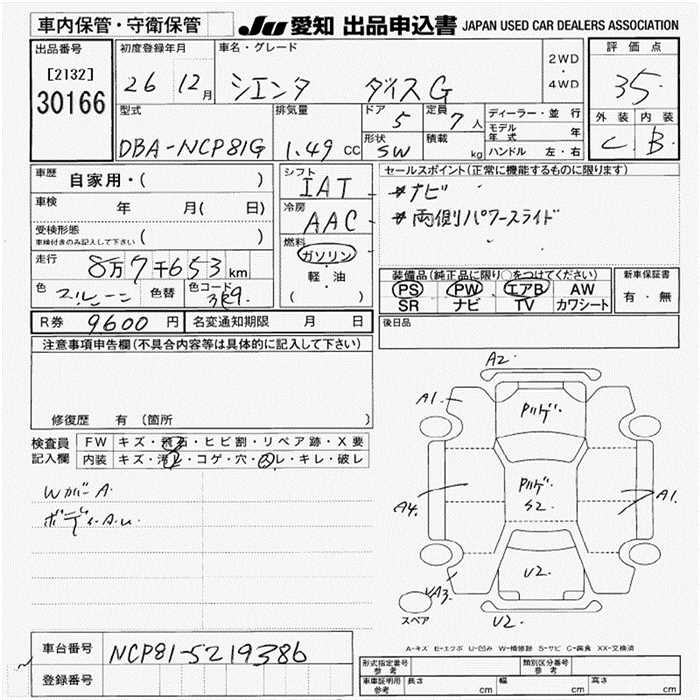 車内保管・守衛保管 JU 愛知 出品申込書 JAPAN USED CAR DEALERS ASSOCIATION
出品番号 初度登録年月 車名・グレード 評価点
[2132] 26 12月 シエンタ ダイスG 2WD・4WD 35.
30166
型式 排気量 ドア 定員 ディーラー・並行 外装 内装
DBA-NCP81G 1.49CC 5 7人 モデル年式 年 C. B.
形状 SW 積載 kg ハンドル 左・右
車歴 自家用・( ) シフト IAT セールスポイント(正常に機能するものに限ります)
車検 年 月( 日) 冷房 AAC #ナビ
受検形態 ( ) #両側パワースライド
車検付きのみ記入して下さい
燃料 ガソリン・軽・油 ( )
走行 8万7千653km
装備品(純正品に限り○をつけてください) 新車保証書
色 色替 色コード PS PW エアB AW 有・無
SR ナビ TV カワシート
R券 9600円 名変通知期限 月 日 後日品
注意事項申告欄(不具合内容等は具体的に記入して下さい)
修復歴 有 (箇所 )
検査員記入欄 FW キズ・飛石・ヒビ割・リペア跡・X要
内装 キズ・汚レ・コゲ・穴・スレ・キレ・破レ
WカバーA.
ボディ
A2.
A1.
Pハゲ.
Pハゲ.
S2.
A4.
A1.
U2.
A3.
U2.
スペア
A-キズ E-エクボ U-凹み W-補修跡 S-サビ C-腐食 XX-交換済
車台番号 NCP81-5219386
登録番号
形式指定番号 参考 類別区分番号 参考
車庫証明用 参考 長さ cm 幅 cm 高さ cm